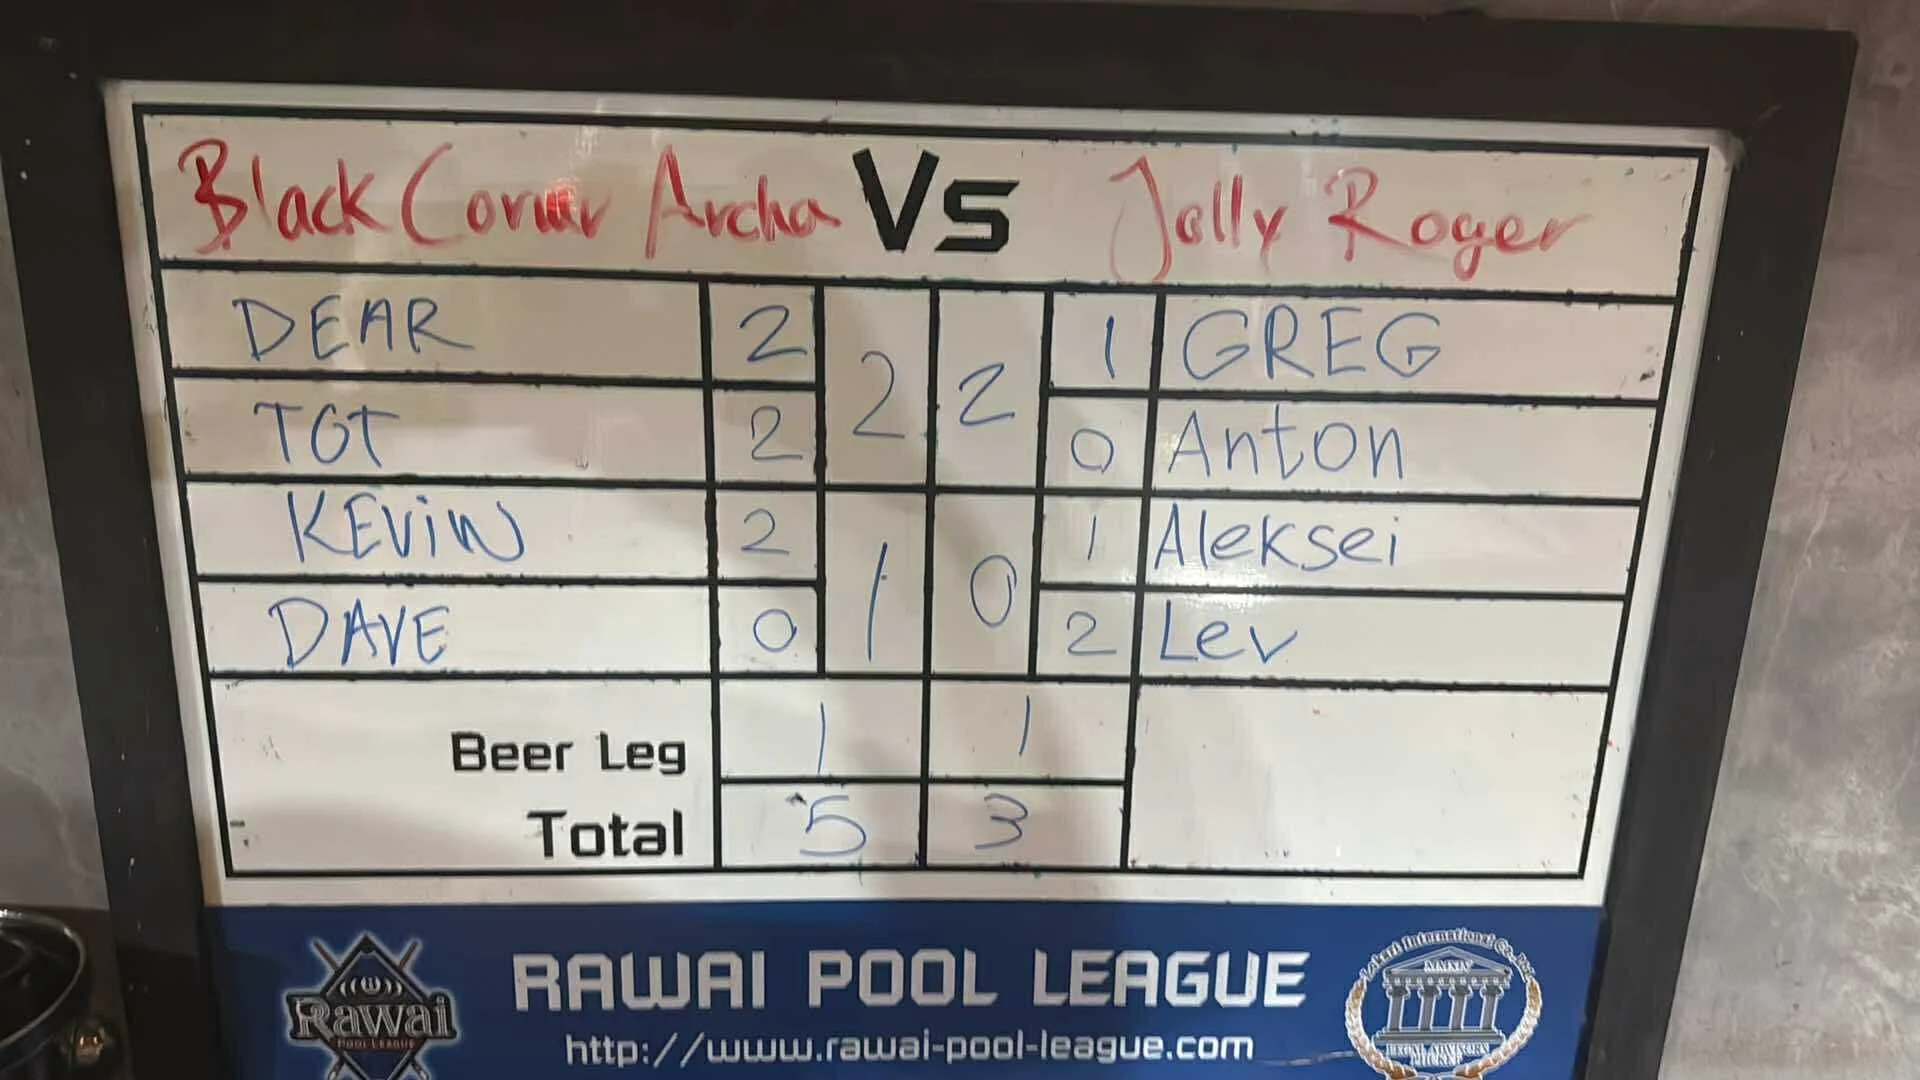 Black Corner Archa Vs Jolly Roger
DEAR 2 2 2 1 GREG
TOT 2 0 Anton
KEViN 2 1 0 1 Aleksei
DAVE 0 2 Lev
Beer Leg 1 1
Total 5 3
RAWAI POOL LEAGUE
http://www.rawai-pool-league.com
Rawai
POOL LEAGUE
International Co.
MMXIV
LEGAL ADVISORY
PHUKET